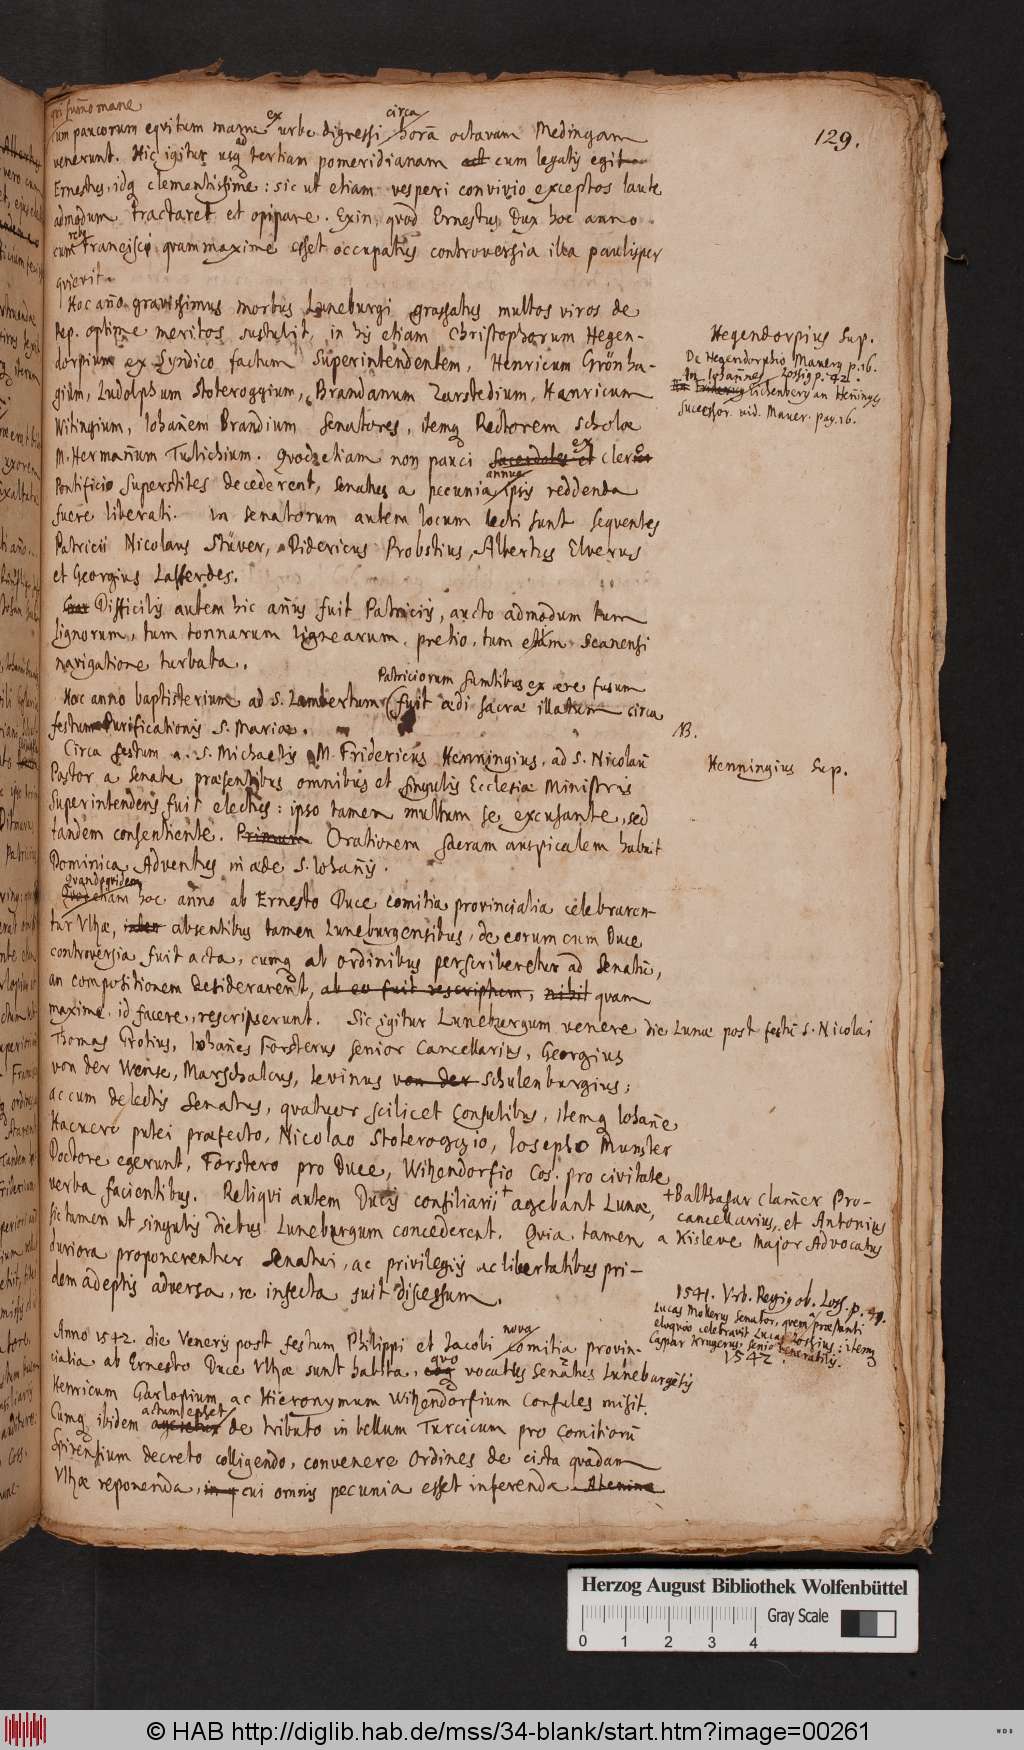 129.
qui summo mane
cum paucorum equitum magna ex urbe digressi circa horã octavam Medingam
venerunt. Hic igitur usq ad tertiam pomeridianam cum legatis egit
Ernestus, idq clementissime: sic ut etiam vesperi convivio exceptos laute
admodum tractaret et opipare. Exin, quod Ernestus Dux hoc anno
cum Francisci quam maxime esset occupatus controversia illa paulisper
quievit.
Hoc año gravissimus morbus Luneburgi grassatus multos viros de
Rep. optime meritos sustulit, in his etiam Christophorum Hegen-
dorpium ex Syndico factum Superintendentem, Henricum Grönha-
gium, Ludolphum Stoteroggium, Brandanum Zarstedium, Henricum
Witingium, Iohañem Brandium Senatores, itemq Rectorem scholæ
M. Hermañum Tulichium. Quod etiam non pauci ex clero
Pontificio superstites decederent, Senatus a pecunia annua ipsis reddenda
fuere liberati. In senatorum autem locum lecti sunt sequentes
Patricii Nicolaus Stüver, Didericus Probstius, Albertus Elverus
et Georgius Lafferdes.
Difficilis autem hic añus fuit Patriciis, aucto admodum tum
lignorum, tum tonnarum lignearum pretio, tum etiam Scanensi
navigatione turbata.
Patriciorum sumtibus ex ære fusum
Hoc anno baptisterium ad S. Lambertum (fuit ædi sacræ illatum circa
festum Purificationis S. Mariæ.
Circa festum S. Michaelis M. Fridericus Henningius, ad S. Nicolaũ
Pastor a Senatu præsentibus omnibus et singulis Ecclesiæ Ministris
Superintendens fuit electus: ipso tamen multum se excusante, sed
tandem consentiente. Primum Orationem sacram auspicalem habuit
Dominica Adventus in æde S. Iohañis.
Quandoquidem
Quod etiam hoc año ab Ernesto Duce comitia provincialia celebraren-
tur Vlhæ, absentibus tamen Luneburgensibus, de eorum cum Duce
controversia fuit acta, cumq ab ordinibus perscriberetur ad Senatũ,
an compositionem desiderarent, ab eo fuit rescriptum, nihil quam
maxime id facere, rescripserunt. Sic igitur Luneburgum venere die Lunæ post festũ S. Nicolai
Thomas Grotius, Iohañes Forsterus senior Cancellarius, Georgius
von der Wense, Marschalcus, Levinus von der Schulenburgius;
ac cum delectis Senatus, quatuor scilicet Consulibus, itemq Iohañe
putei præfecto, Nicolao Stoteroggio, Iosepho Munster
Doctore egerunt, Forstero pro Duce, Witzendorfio Cos. pro civitate
verba facientibus. Reliqui autem Ducis consiliarii + agebant Lunæ,
sic tamen ut singulis diebus Luneburgum concederent. Quia tamen
duriora proponerentur Senatui, ac privilegiis ac libertatibus pri-
dem adeptis adversa, re infecta fuit discessum.
Anno 1542. die Veneris post festum Philippi et Jacobi nova Comitia provin-
cialia ab Ernesto Duce Vlhæ sunt habita, quo vocatus Senatus Luneburgẽsis
Henricum Garlopium ac Hieronymum Witzendorfium Consules misit.
Cumq ibidem actum esset de tributo in bellum Turcicum pro Comitiorũ
Spirensium decreto colligendo, convenere Ordines de cista quadam
Vlhæ reponenda, in q cui omnis pecunia esset inferenda.
Hegendorpius Sup.
De Hegendorphio Mauerq p.16.
An Iohañes Lossig p. 42.
Lichenberg an Heñings
Successor. vid. Mauer. pag. 16.
NB.
Henningius Sup.
+ Balthasar Clamer Pro-
cancellarius, et Antonius
a Kisleve Major Advocatus
1541. Vrb. Regig ob. Loss. p. 49.
Lucas Mollerus Senator, quem præstanti
eloquio celebravit Lucas Lossius: itemq
Caspar Krugerus senio venerabilis.
1542.
Herzog August Bibliothek Wolfenbüttel
Gray Scale
0 1 2 3 4
© HAB http://diglib.hab.de/mss/34-blank/start.htm?image=00261
WDB